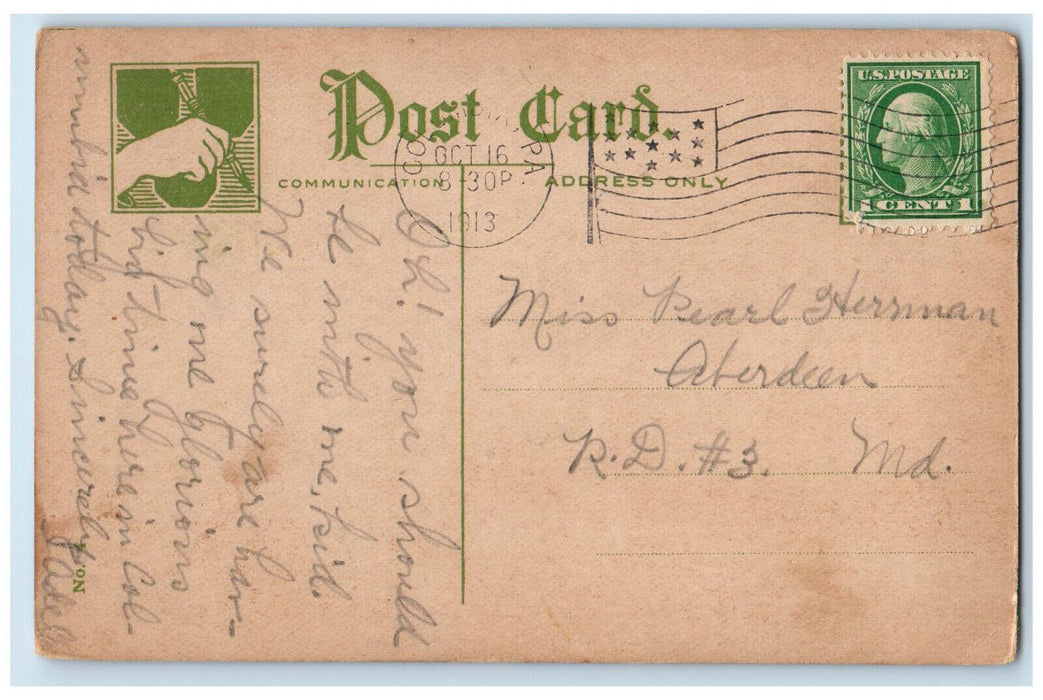 Post Card.
COMMUNICATION
ADDRESS ONLY
PA
OCT 16
8-30P
1913
U.S. POSTAGE
1 CENT 1
Miss Pearl Herrman
Aberdeen
R.D. #3. Md.
Oh! you should
be with me, kid.
We surely are hav-
ing one glorious
big time here in Col-
umbia today. Sincerely
No.